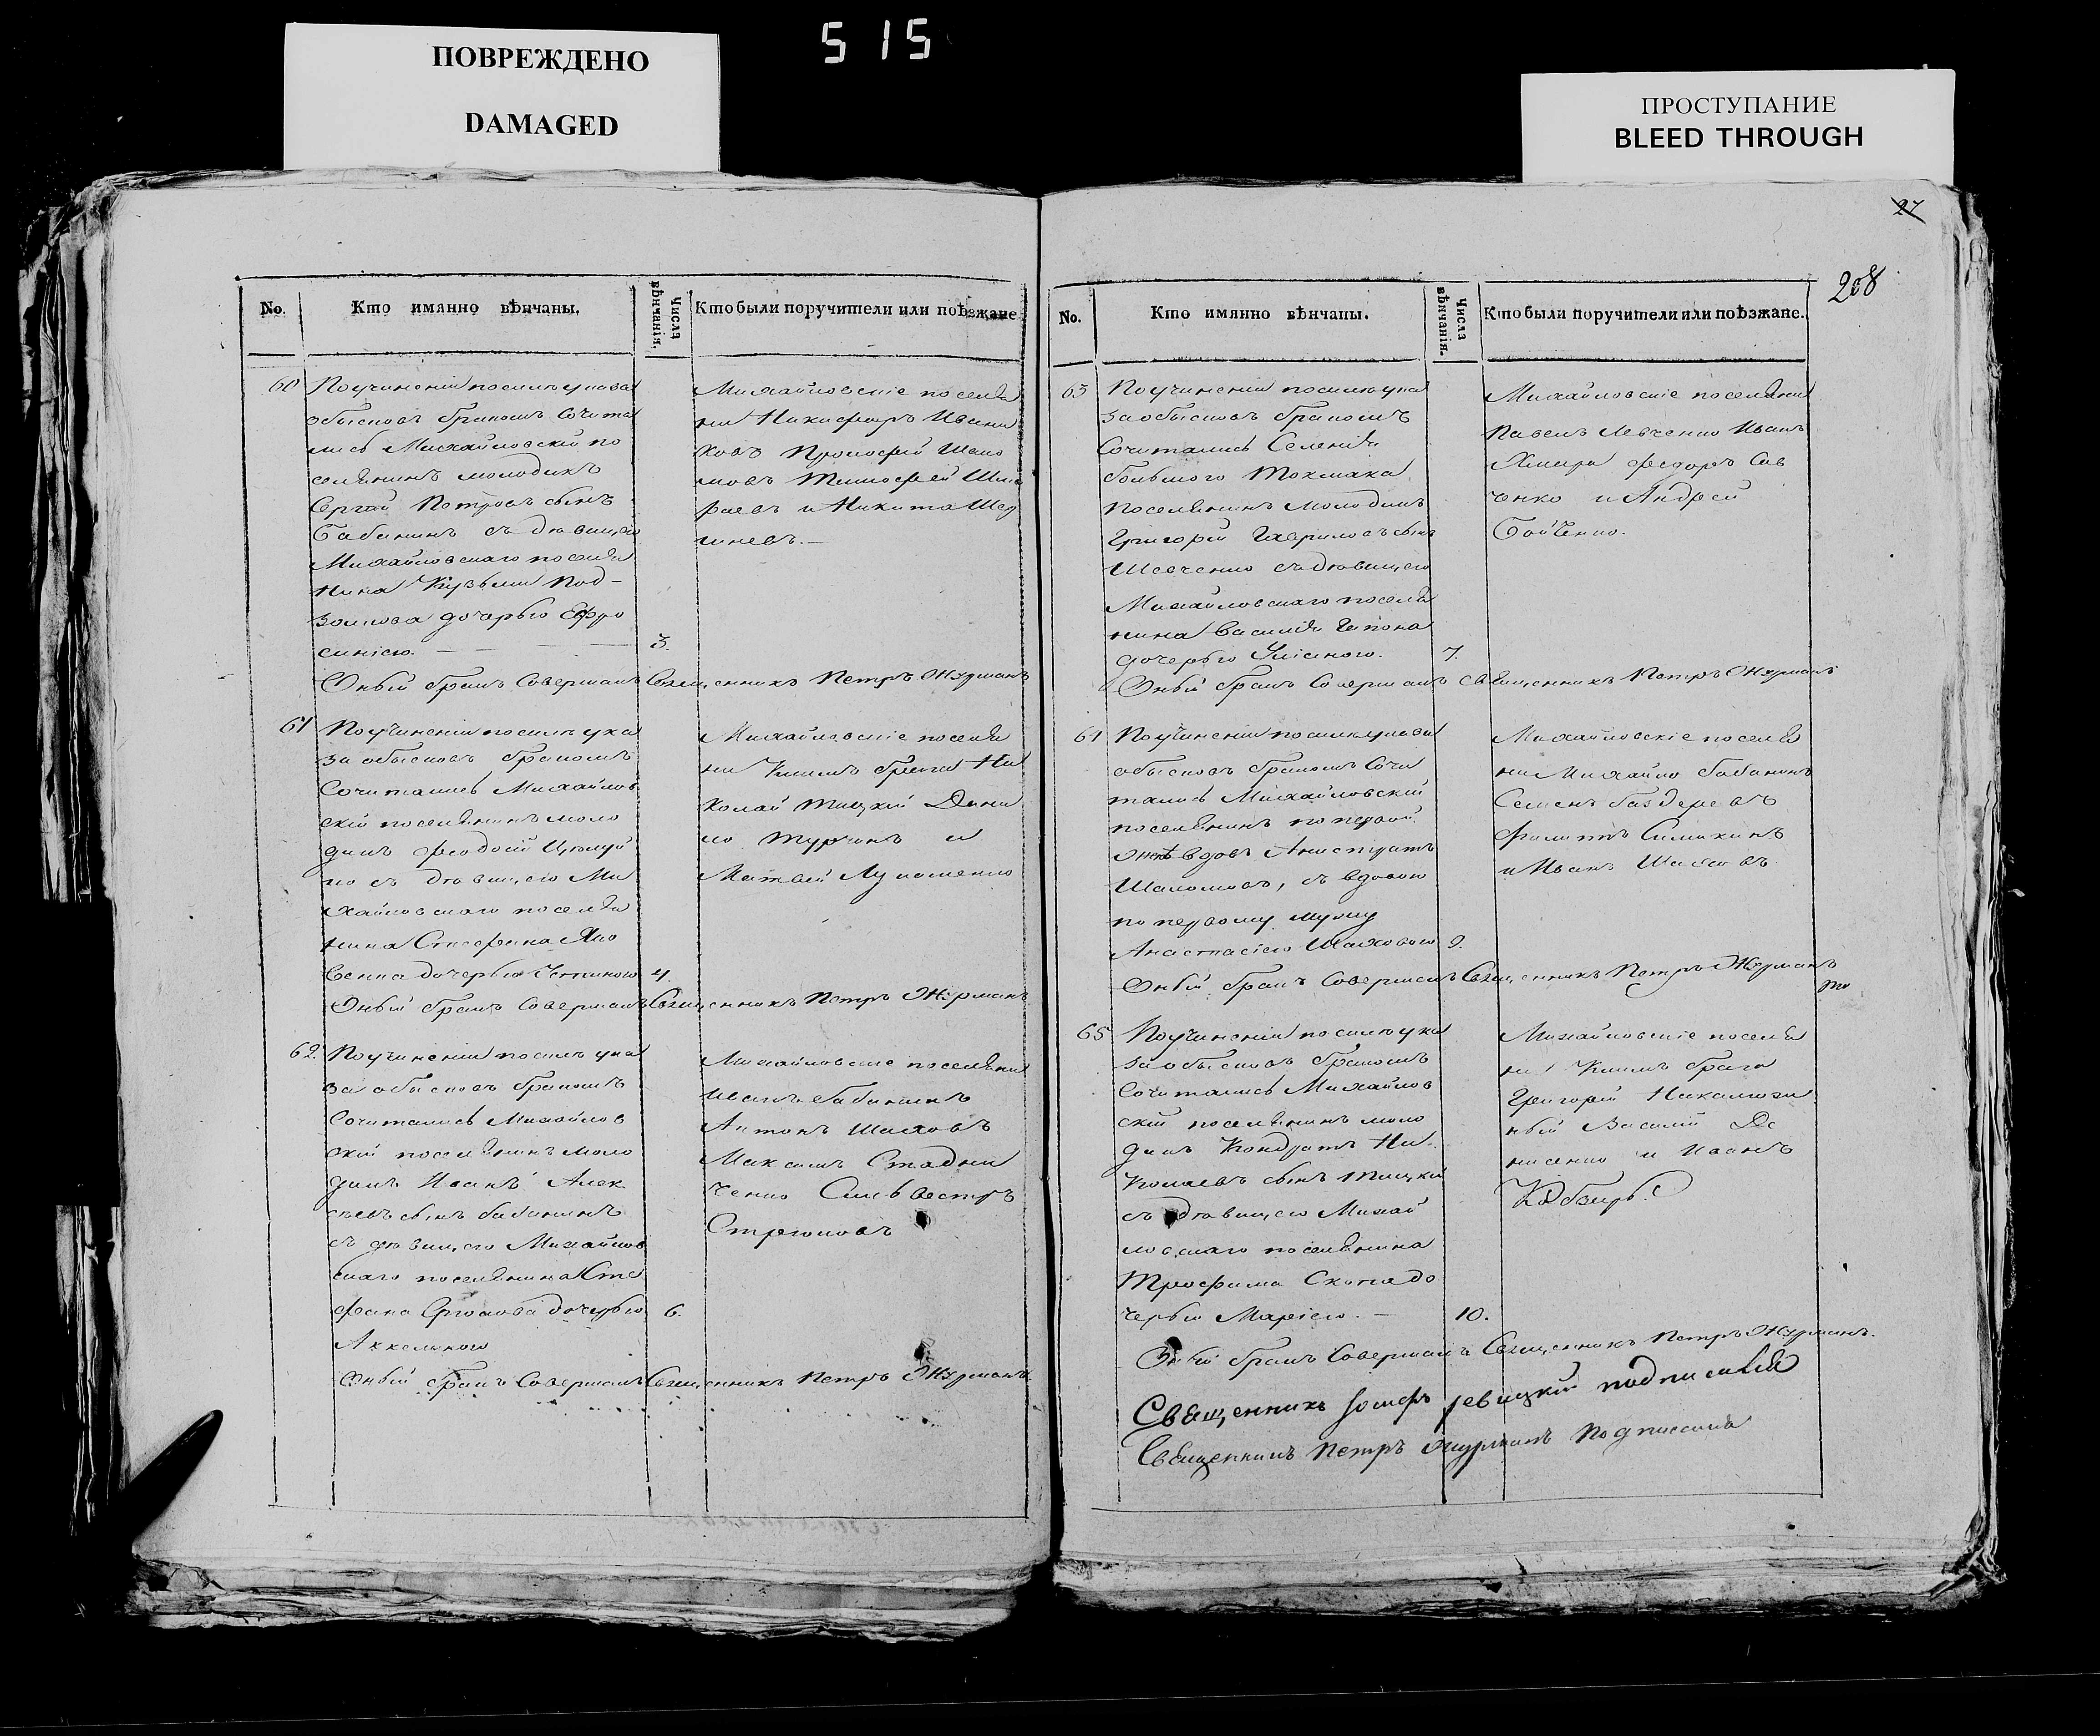 ПОВРЕЖДЕНО
DAMAGED
515
ПРОСТУПАНИЕ
BLEED THROUGH
27
208
No.
Кто имянно вѣнчаны.
Числа вѣнчанія.
Кто были поручители или поѣзжане
60
По учиненіи по силе указа
обысковъ бракомъ сочита
лись Михайловскій по
селянинъ молодикъ
Сергей Петровъ сынъ
Бабанинъ съ девицею
Михайловскаго поселя
нина Кузьмы Под-
золкова дочерью Ефро
синіею. 3.
Михайловскіе поселя
не Никифоръ Ивани
ковъ
Тимофей
и Никита
Оный бракъ совершалъ Священникъ Петръ Журманъ
61
По учиненіи по силе ука
за обысковъ бракомъ
сочитались Михайлов
скій поселянинъ моло
дикъ Феодосій
съ девицею Ми
хайловскаго поселя
нина Стефана Яко
венка дочерью Устиною 4.
Михайловскіе поселя
не Климъ Брага Ни
колай Тицкій Дани
ло Турчинъ и
Матвей Лукошенко
Оный бракъ совершалъ Священникъ Петръ Журманъ
62.
По учиненіи по силе ука
за обысковъ бракомъ
сочитались Михайлов
скій поселянинъ моло
дикъ Иванъ Алек
сеевъ сынъ Бабанинъ
съ девицею Михайлов
скаго поселянина Сте
фана дочерью 6.
Михайловскіе поселяне
Иванъ Бабанинъ
Антонъ Шаховъ
Максимъ Стадни
ченко Сильвестръ
Стрюковъ
Оный бракъ совершалъ Священникъ Петръ Журманъ
No.
Кто имянно вѣнчаны.
Числа вѣнчанія.
Кто были поручители или поѣзжане.
63
По учиненіи по силе ука
за обысковъ бракомъ
сочитались Селенія
большого Токмака
поселянинъ молодикъ
Григорій Гавриловъ сынъ
Шевченко съ девицею
Михайловскаго поселя
нина Василія Гапона
дочерью 7.
Михайловскіе поселяне
Павелъ Левченко Иванъ
Хмара Федоръ Сав
ченко и Андрей
Бойченко.
Оный бракъ совершалъ Священникъ Петръ Журманъ
61
По учиненіи по силе указа
обысковъ бракомъ сочи
тались Михайловскій
поселянинъ по первой
жене вдовъ
съ вдовою
по первому мужу
Анастасіею Шаховою 9.
Михайловскіе поселя
не Михайло Бабанинъ
Семенъ
Филиппъ Симахинъ
и Иванъ Шаховъ
Оный бракъ совершалъ Священникъ Петръ Журманъ
65
По учиненіи по силе ука
за обысковъ бракомъ
сочитались Михайлов
скій поселянинъ моло
дикъ Кондратъ Ни
колаевъ сынъ Тицкій
съ девицею Михай
ловскаго поселянина
Трофима Скопа до
черью Маріею. 10.
Михайловскіе поселя
не Климъ Брага
Григорій
Василій Де
нисенко и Иванъ
Кобзарь.
Оный бракъ совершалъ Священникъ Петръ Журманъ.
Священникъ подписался
Священникъ Петръ Журманъ подписался